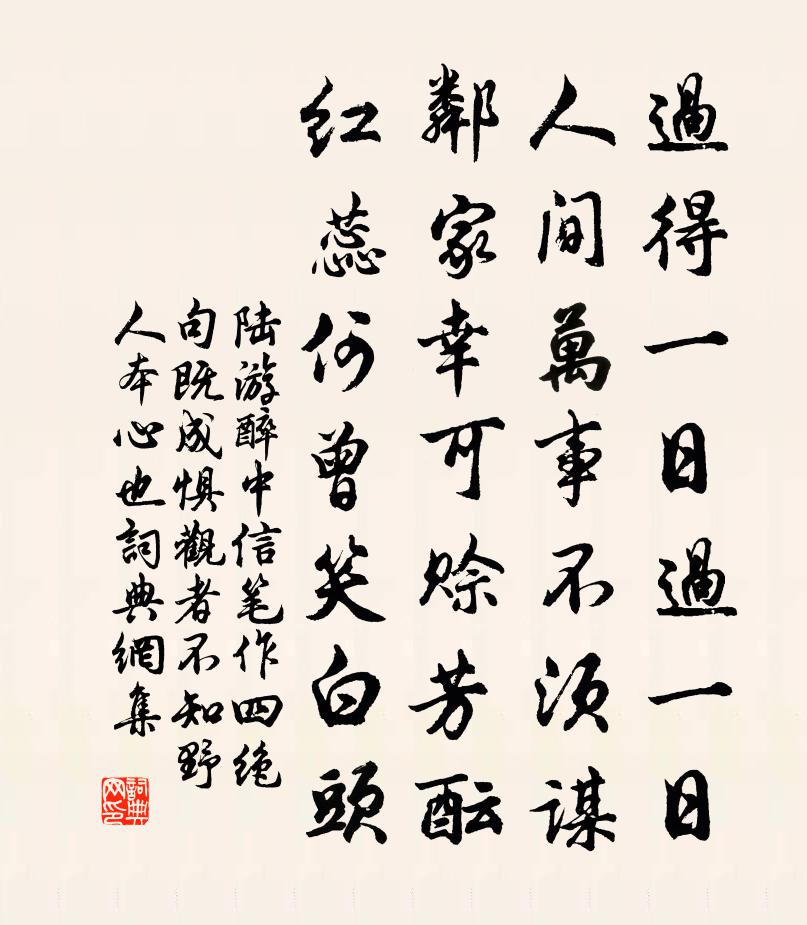 過得一日過一日
人间萬事不須謀
鄰家幸可赊芳酝
红蕊何曾笑白頭
陆游醉中信笔作四绝
句既成惧觀者不知野
人本心也詞典網集
詞典
网印